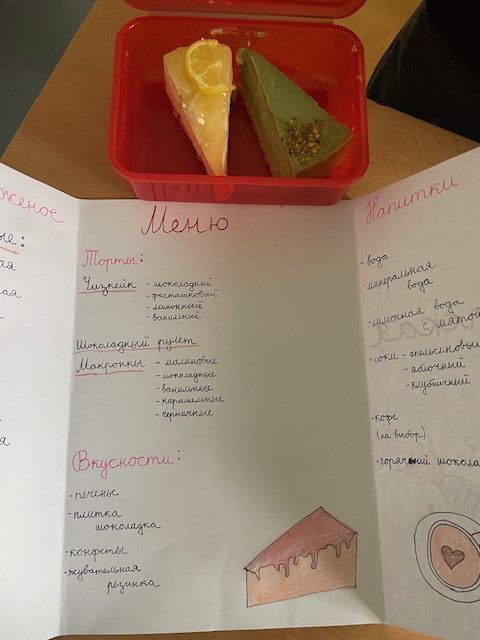 Меню
Торты:
Чизкейк - шоколадный
- фисташковый
- лимонный
- ванильный
Шоколадный рулет
Макронки - малиновые
- шоколадные
- ванильные
- карамельные
- черничные
Вкусности:
- печенье
- плитка
шоколадка
- конфеты
- жувательная
резинка
Напитки
- вода
- минеральная
вода
- лимонная вода
с мятой
- соки - апельсиновы
- яблочный
- клубничный
- кофе
(на выбор)
- горячий шокола